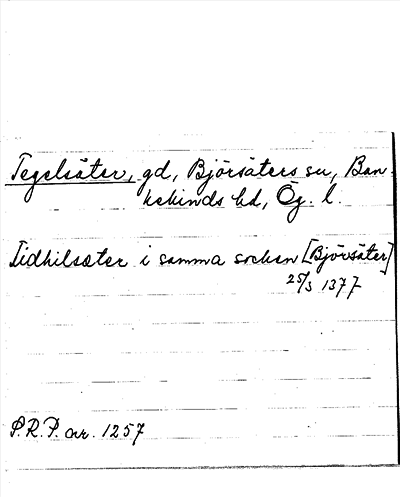 Tegelsäter, gd, Björsäters sn, Ban-
kekinds hd, Ög. l.
Tidhilsæter i samma socken [Björsäter]
25/3 1377
P.R.P. nr. 1257